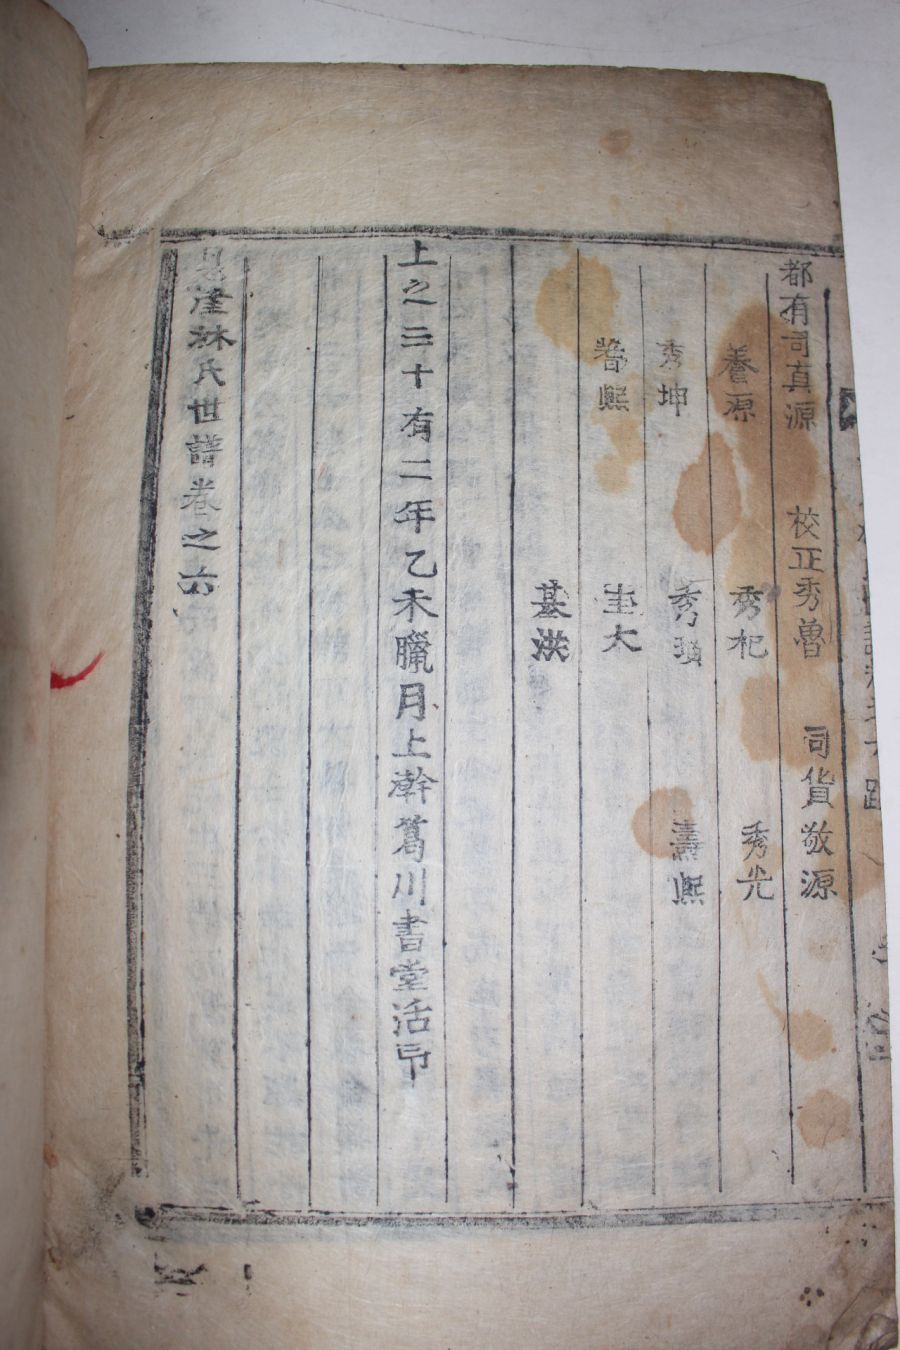 都有司真源 校正秀魯 司貨敬源
養源 秀杞 秀光
秀坤 秀 燾熙
熙 圭大
基洪
上之三十有二年乙未臘月上澣葛川書堂活印
恩津林氏世譜卷之六